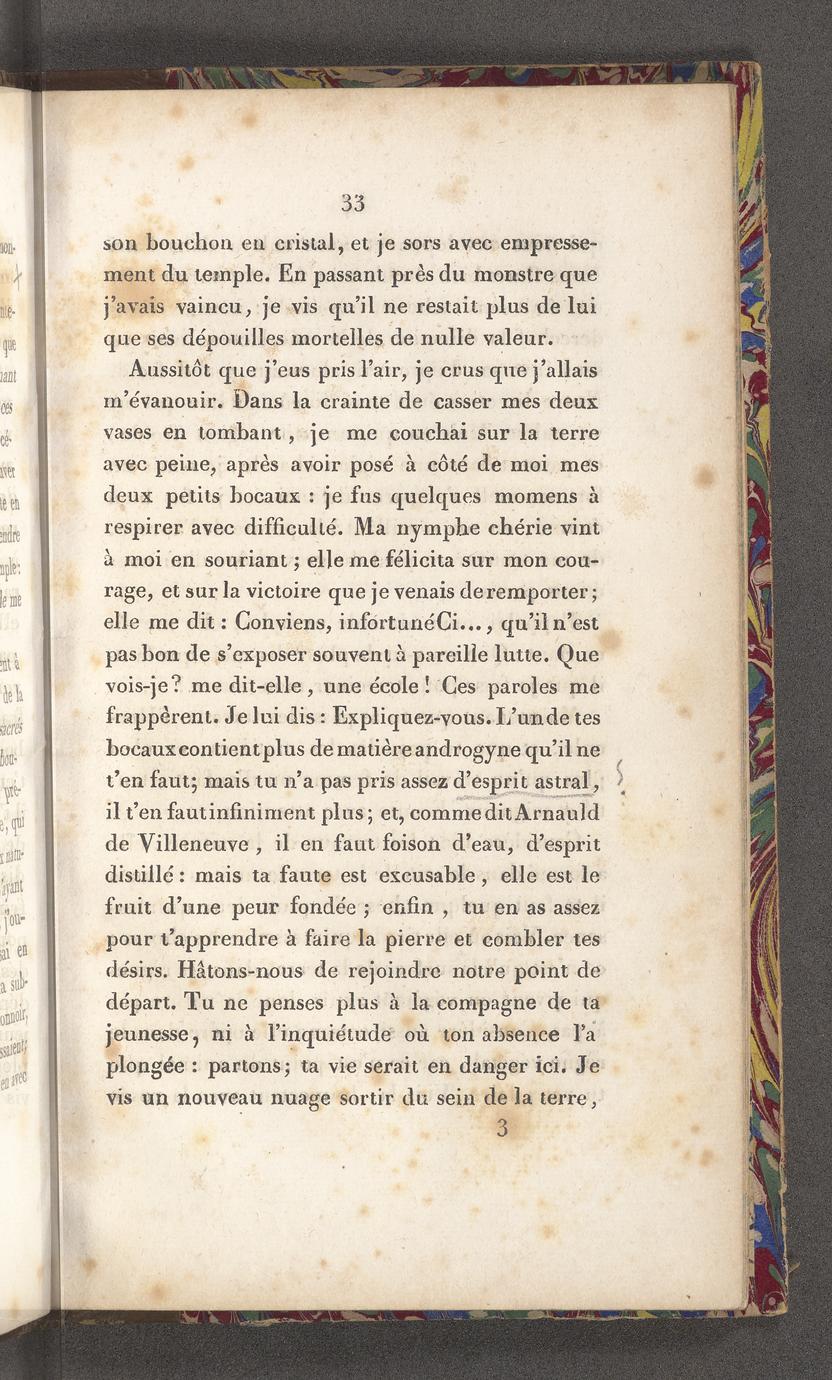 33
son bouchon en cristal, et je sors avec empresse-
ment du temple. En passant près du monstre que
j'avais vaincu, je vis qu'il ne restait plus de lui
que ses dépouilles mortelles de nulle valeur.
Aussitôt que j'eus pris l'air, je crus que j'allais
m'évanouir. Dans la crainte de casser mes deux
vases en tombant, je me couchai sur la terre
avec peine, après avoir posé à côté de moi mes
deux petits bocaux : je fus quelques momens à
respirer avec difficulté. Ma nymphe chérie vint
à moi en souriant ; elle me félicita sur mon cou-
rage, et sur la victoire que je venais de remporter ;
elle me dit : Conviens, infortuné Ci..., qu'il n'est
pas bon de s'exposer souvent à pareille lutte. Que
vois-je ? me dit-elle, une école ! Ces paroles me
frappèrent. Je lui dis : Expliquez-vous. L'un de tes
bocaux contient plus de matière androgyne qu'il ne
t'en faut; mais tu n'a pas pris assez d'esprit astral,
il t'en faut infiniment plus ; et, comme dit Arnauld
de Villeneuve , il en faut foison d'eau, d'esprit
distillé : mais ta faute est excusable , elle est le
fruit d'une peur fondée ; enfin , tu en as assez
pour t'apprendre à faire la pierre et combler tes
désirs. Hâtons-nous de rejoindre notre point de
départ. Tu ne penses plus à la compagne de ta
jeunesse, ni à l'inquiétude où ton absence l'a
plongée : partons ; ta vie serait en danger ici. Je
vis un nouveau nuage sortir du sein de la terre,
3
que
ces
cé-
te en
le me
de la
sacrés
pré-
j'ou-